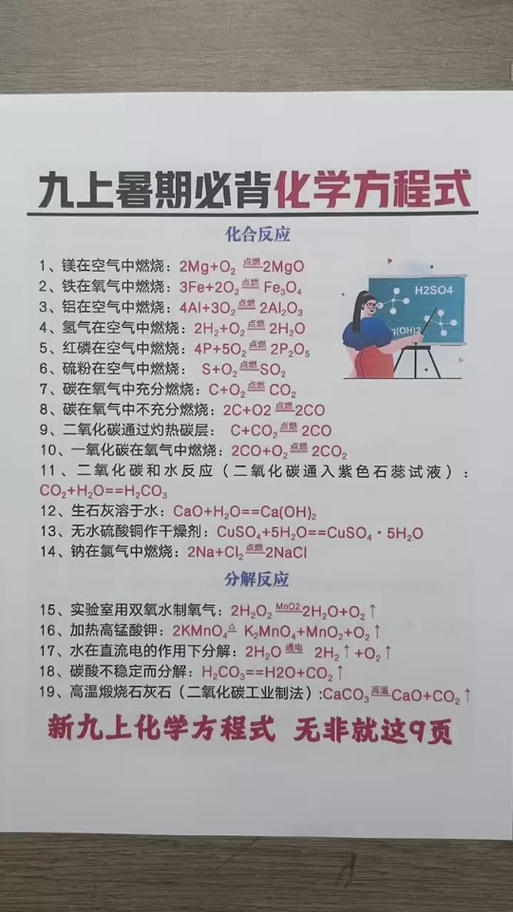 九上暑期必背化学方程式
化合反应
1、镁在空气中燃烧：2Mg+O₂ 点燃 2MgO
2、铁在氧气中燃烧：3Fe+2O₂ 点燃 Fe₃O₄
3、铝在空气中燃烧：4Al+3O₂ 点燃 2Al₂O₃
4、氢气在空气中燃烧：2H₂+O₂ 点燃 2H₂O
5、红磷在空气中燃烧：4P+5O₂ 点燃 2P₂O₅
6、硫粉在空气中燃烧： S+O₂ 点燃 SO₂
7、碳在氧气中充分燃烧：C+O₂ 点燃 CO₂
8、碳在氧气中不充分燃烧：2C+O2 点燃 2CO
9、二氧化碳通过灼热碳层： C+CO₂ 点燃 2CO
10、一氧化碳在氧气中燃烧：2CO+O₂ 点燃 2CO₂
11、二氧化碳和水反应（二氧化碳通入紫色石蕊试液）：
CO₂+H₂O==H₂CO₃
12、生石灰溶于水：CaO+H₂O==Ca(OH)₂
13、无水硫酸铜作干燥剂：CuSO₄+5H₂O==CuSO₄·5H₂O
14、钠在氯气中燃烧：2Na+Cl₂ 点燃 2NaCl
H2SO4
g(OH)2
分解反应
15、实验室用双氧水制氧气：2H₂O₂ MnO2 2H₂O+O₂↑
16、加热高锰酸钾：2KMnO₄ △ K₂MnO₄+MnO₂+O₂↑
17、水在直流电的作用下分解：2H₂O 通电 2H₂↑+O₂↑
18、碳酸不稳定而分解：H₂CO₃==H2O+CO₂↑
19、高温煅烧石灰石（二氧化碳工业制法）:CaCO₃ 高温 CaO+CO₂↑
新九上化学方程式 无非就这9页